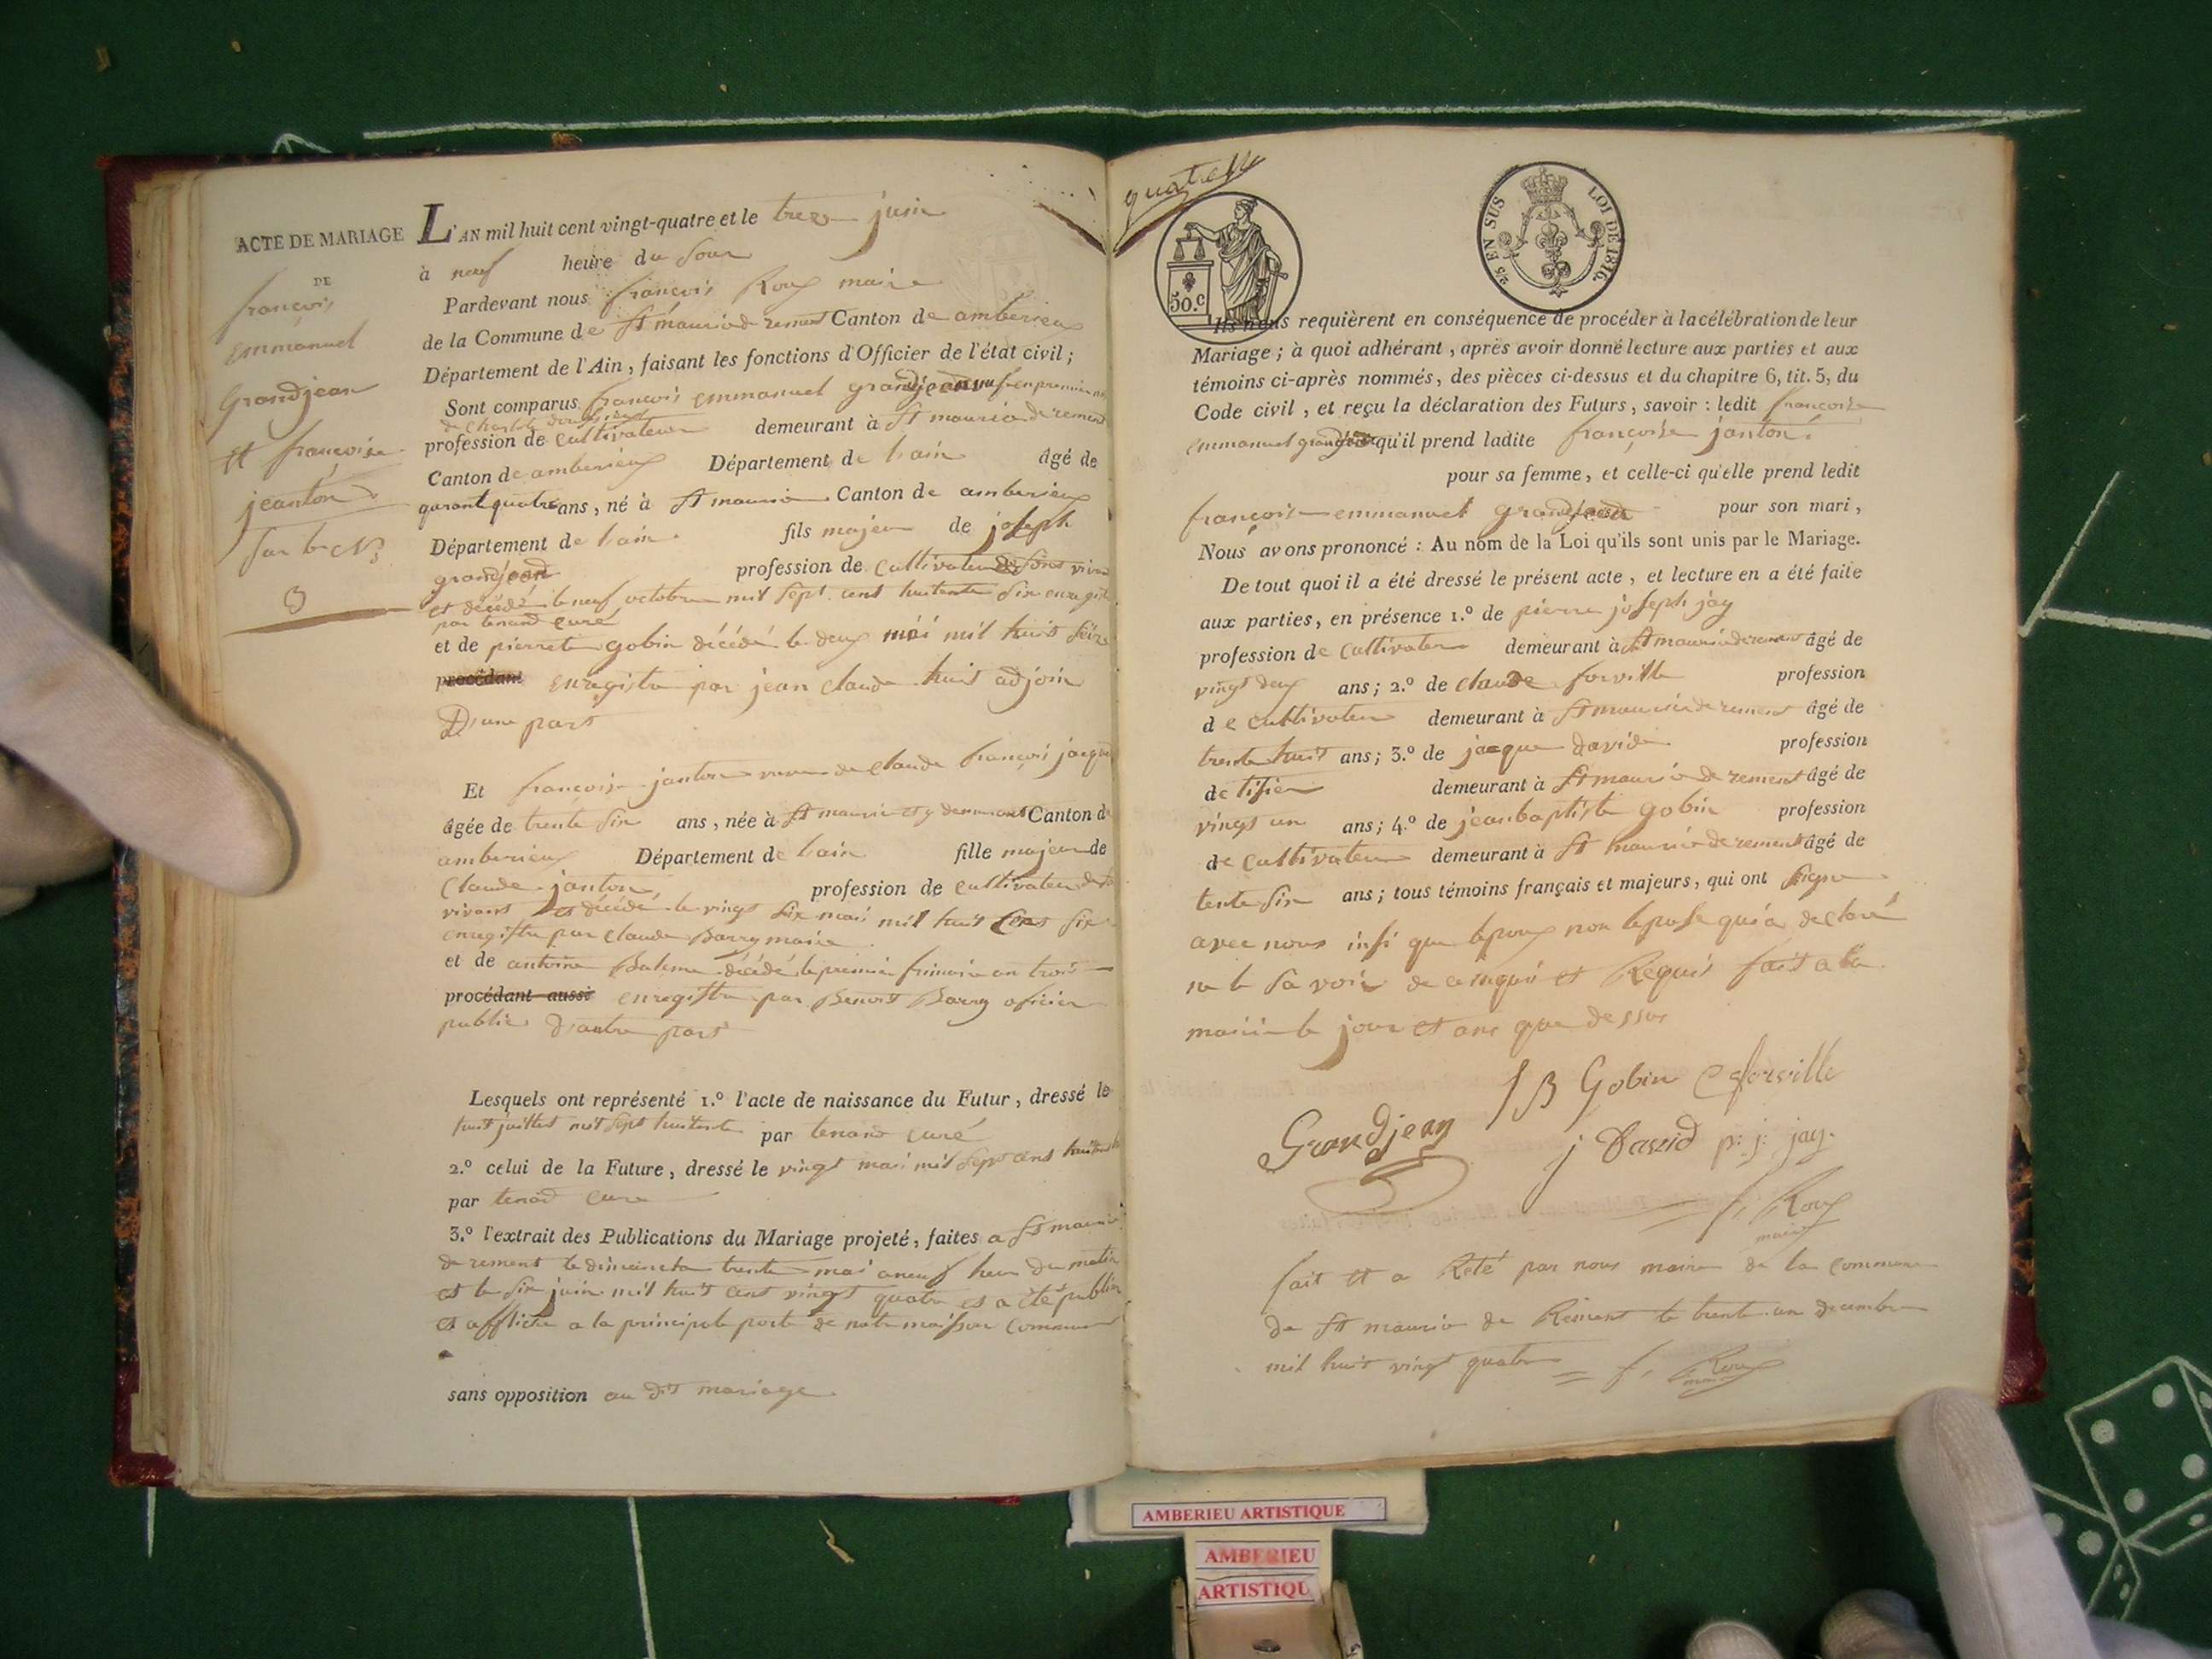 ACTE DE MARIAGE
DE
françois
emmanuel
Grandjean
et françoise
jeanton
sur le N
3
L'AN mil huit cent vingt-quatre et le treze juin
à neuf heure du soir
Pardevant nous françois Roux maire
de la Commune de St mauricde rement Canton de amberieux
Département de l'Ain, faisant les fonctions d'Officier de l'état civil;
Sont comparus françois emmanuel grandjean en premier
de Charlote
profession de cultivateur demeurant à St mauric de rement
Canton de amberieux Département de lain âgé de
quarant quatre ans, né à St mauric Canton de amberieux
Département de lain fils majeur de joseph
grandjean profession de cultivateur vivan
et décédé le neuf octobre mil sept cent huitente six
par tenand curé
et de pierrete gobin décédé le deux mai mil huit
procédant enregistre par jean claude huit adjoin
D'une part
Et françoise janton veuve de claude françois jacque
âgée de trente six ans, née à St mauric et y demeurant Canton de
amberieux Département de lain fille majeur de
Claude janton, profession de cultivateur
vivant et décédé le vingt six mai mil huit cens six
enregistre par claude Barry maire
et de antoine décédé le premier frimaire an trois
procédant aussi enregistre par Benoit Barry oficier
public d'autre part
Lesquels ont représenté 1.º l'acte de naissance du Futur, dressé le
huit juillet mil sept huitente par tenand curé
2.º celui de la Future, dressé le vingt mai mil sept cens
par tenad cure
3.º l'extrait des Publications du Mariage projeté, faites a St mauric
de rement le dimanche trente mai a neuf heur du matin
et le six juin mil huit cent vingt quatre et a été publie
et affiche a la principale porte de notre maison commune
sans opposition au dit mariage
50.c
25 EN SUS
LOI DE 1816.
Ils nous requièrent en conséquence de procéder à la célébration de leur
Mariage; à quoi adhérant, après avoir donné lecture aux parties et aux
témoins ci-après nommés, des pièces ci-dessus et du chapitre 6, tit. 5, du
Code civil, et reçu la déclaration des Futurs, savoir: ledit françoise
emmanuel grandjean qu'il prend ladite françoise janton
pour sa femme, et celle-ci qu'elle prend ledit
françois emmanuel grandjean pour son mari,
Nous avons prononcé: Au nom de la Loi qu'ils sont unis par le Mariage.
De tout quoi il a été dressé le présent acte, et lecture en a été faite
aux parties, en présence 1.º de pierre joseph jay
profession de cultivateur demeurant à St mauric de rement âgé de
vingt deux ans; 2.º de claude forville profession
de cultivateur demeurant à St mauric de rement âgé de
trente huit ans; 3.º de jacque david profession
de tisier demeurant à St mauric de rement âgé de
vingt un ans; 4.º de jeanbaptiste gobin profession
de cultivateur demeurant à St mauric de rement âgé de
tente six ans; tous témoins français et majeurs, qui ont signe
avec nous insi que lepoux non lepouse qui a declaré
ne le savoir de ce enquis et Requis fait a la
mairie le jour et ans que dessus
J B Gobin C forville
Grandjean
j David p: j: jay.
f, Roux
maire
fait et a Reté par nous maire de la commune
de St mauric de Rement le trente un decembre
mil huit vingt quatre = f, Roux
maire
AMBERIEU ARTISTIQUE
AMBERIEU
ARTISTIQU